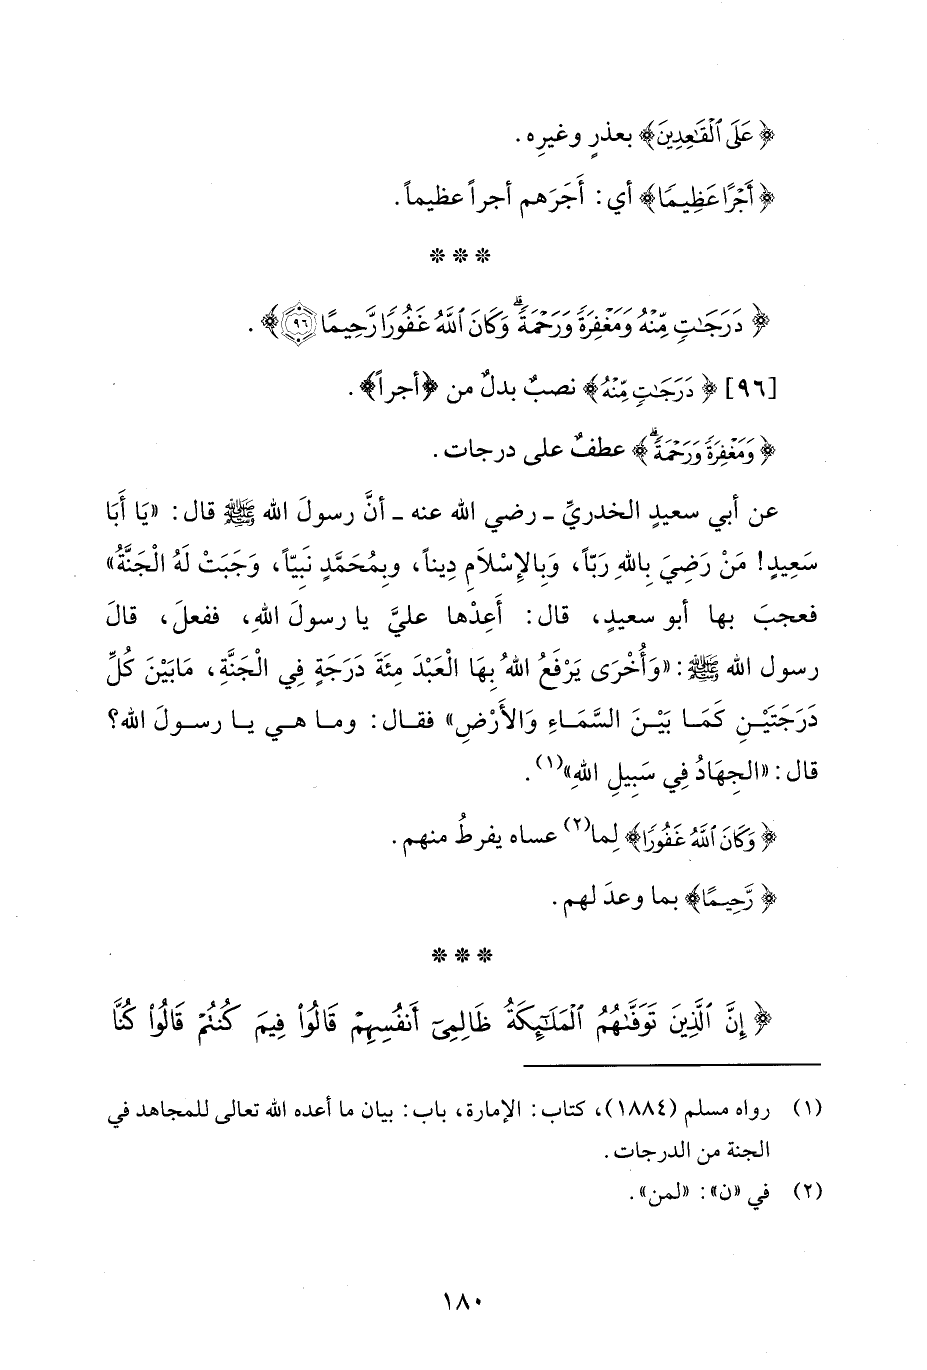 ﴿عَلَى ٱلْقَٰعِدِينَ﴾ بعذرٍ وغيرِه.
﴿أَجْرًا عَظِيمًا﴾ أي: أَجَرَهم أجراً عظيماً.
* * *
﴿دَرَجَٰتٍ مِّنْهُ وَمَغْفِرَةً وَرَحْمَةً ۗ وَكَانَ ٱللَّهُ غَفُورًا رَّحِيمًا ۝٩٦﴾.
[٩٦] ﴿دَرَجَٰتٍ مِّنْهُ﴾ نصبٌ بدلٌ من ﴿أجراً﴾.
﴿وَمَغْفِرَةً وَرَحْمَةً ۗ﴾ عطفٌ على درجات.
عن أبي سعيدٍ الخدريِّ ـ رضي الله عنه ـ أنَّ رسولَ الله ﷺ قال: «يَا أَبَا
سَعِيدٍ! مَنْ رَضِيَ بِاللهِ رَبّاً، وَبِالإِسْلَامِ دِيناً، وبِمُحَمَّدٍ نَبِيّاً، وَجَبَتْ لَهُ الْجَنَّةُ»
فعجبَ بها أبو سعيد، قال: أَعِدْها عليَّ يا رسولَ اللهِ، ففعلَ، قالَ
رسول الله ﷺ: «وَأُخْرَى يَرْفَعُ اللهُ بِهَا الْعَبْدَ مِئَةَ دَرَجَةٍ فِي الْجَنَّةِ، مَابَيْنَ كُلِّ
دَرَجَتَيْنِ كَمَا بَيْنَ السَّمَاءِ وَالأَرْضِ» فقال: وما هي يا رسولَ الله؟
قال: «الجِهَادُ فِي سَبِيلِ اللهِ»(١).
﴿وَكَانَ ٱللَّهُ غَفُورًا﴾ لِما(٢) عساه يفرطُ منهم.
﴿رَّحِيمًا﴾ بما وعدَ لهم.
* * *
﴿إِنَّ ٱلَّذِينَ تَوَفَّىٰهُمُ ٱلْمَلَٰٓئِكَةُ ظَالِمِىٓ أَنفُسِهِمْ قَالُوا۟ فِيمَ كُنتُمْ قَالُوا۟ كُنَّا
(١) رواه مسلم (١٨٨٤)، كتاب: الإمارة، باب: بيان ما أعده الله تعالى للمجاهد في
الجنة من الدرجات.
(٢) في «ن»: «لمن».
١٨٠